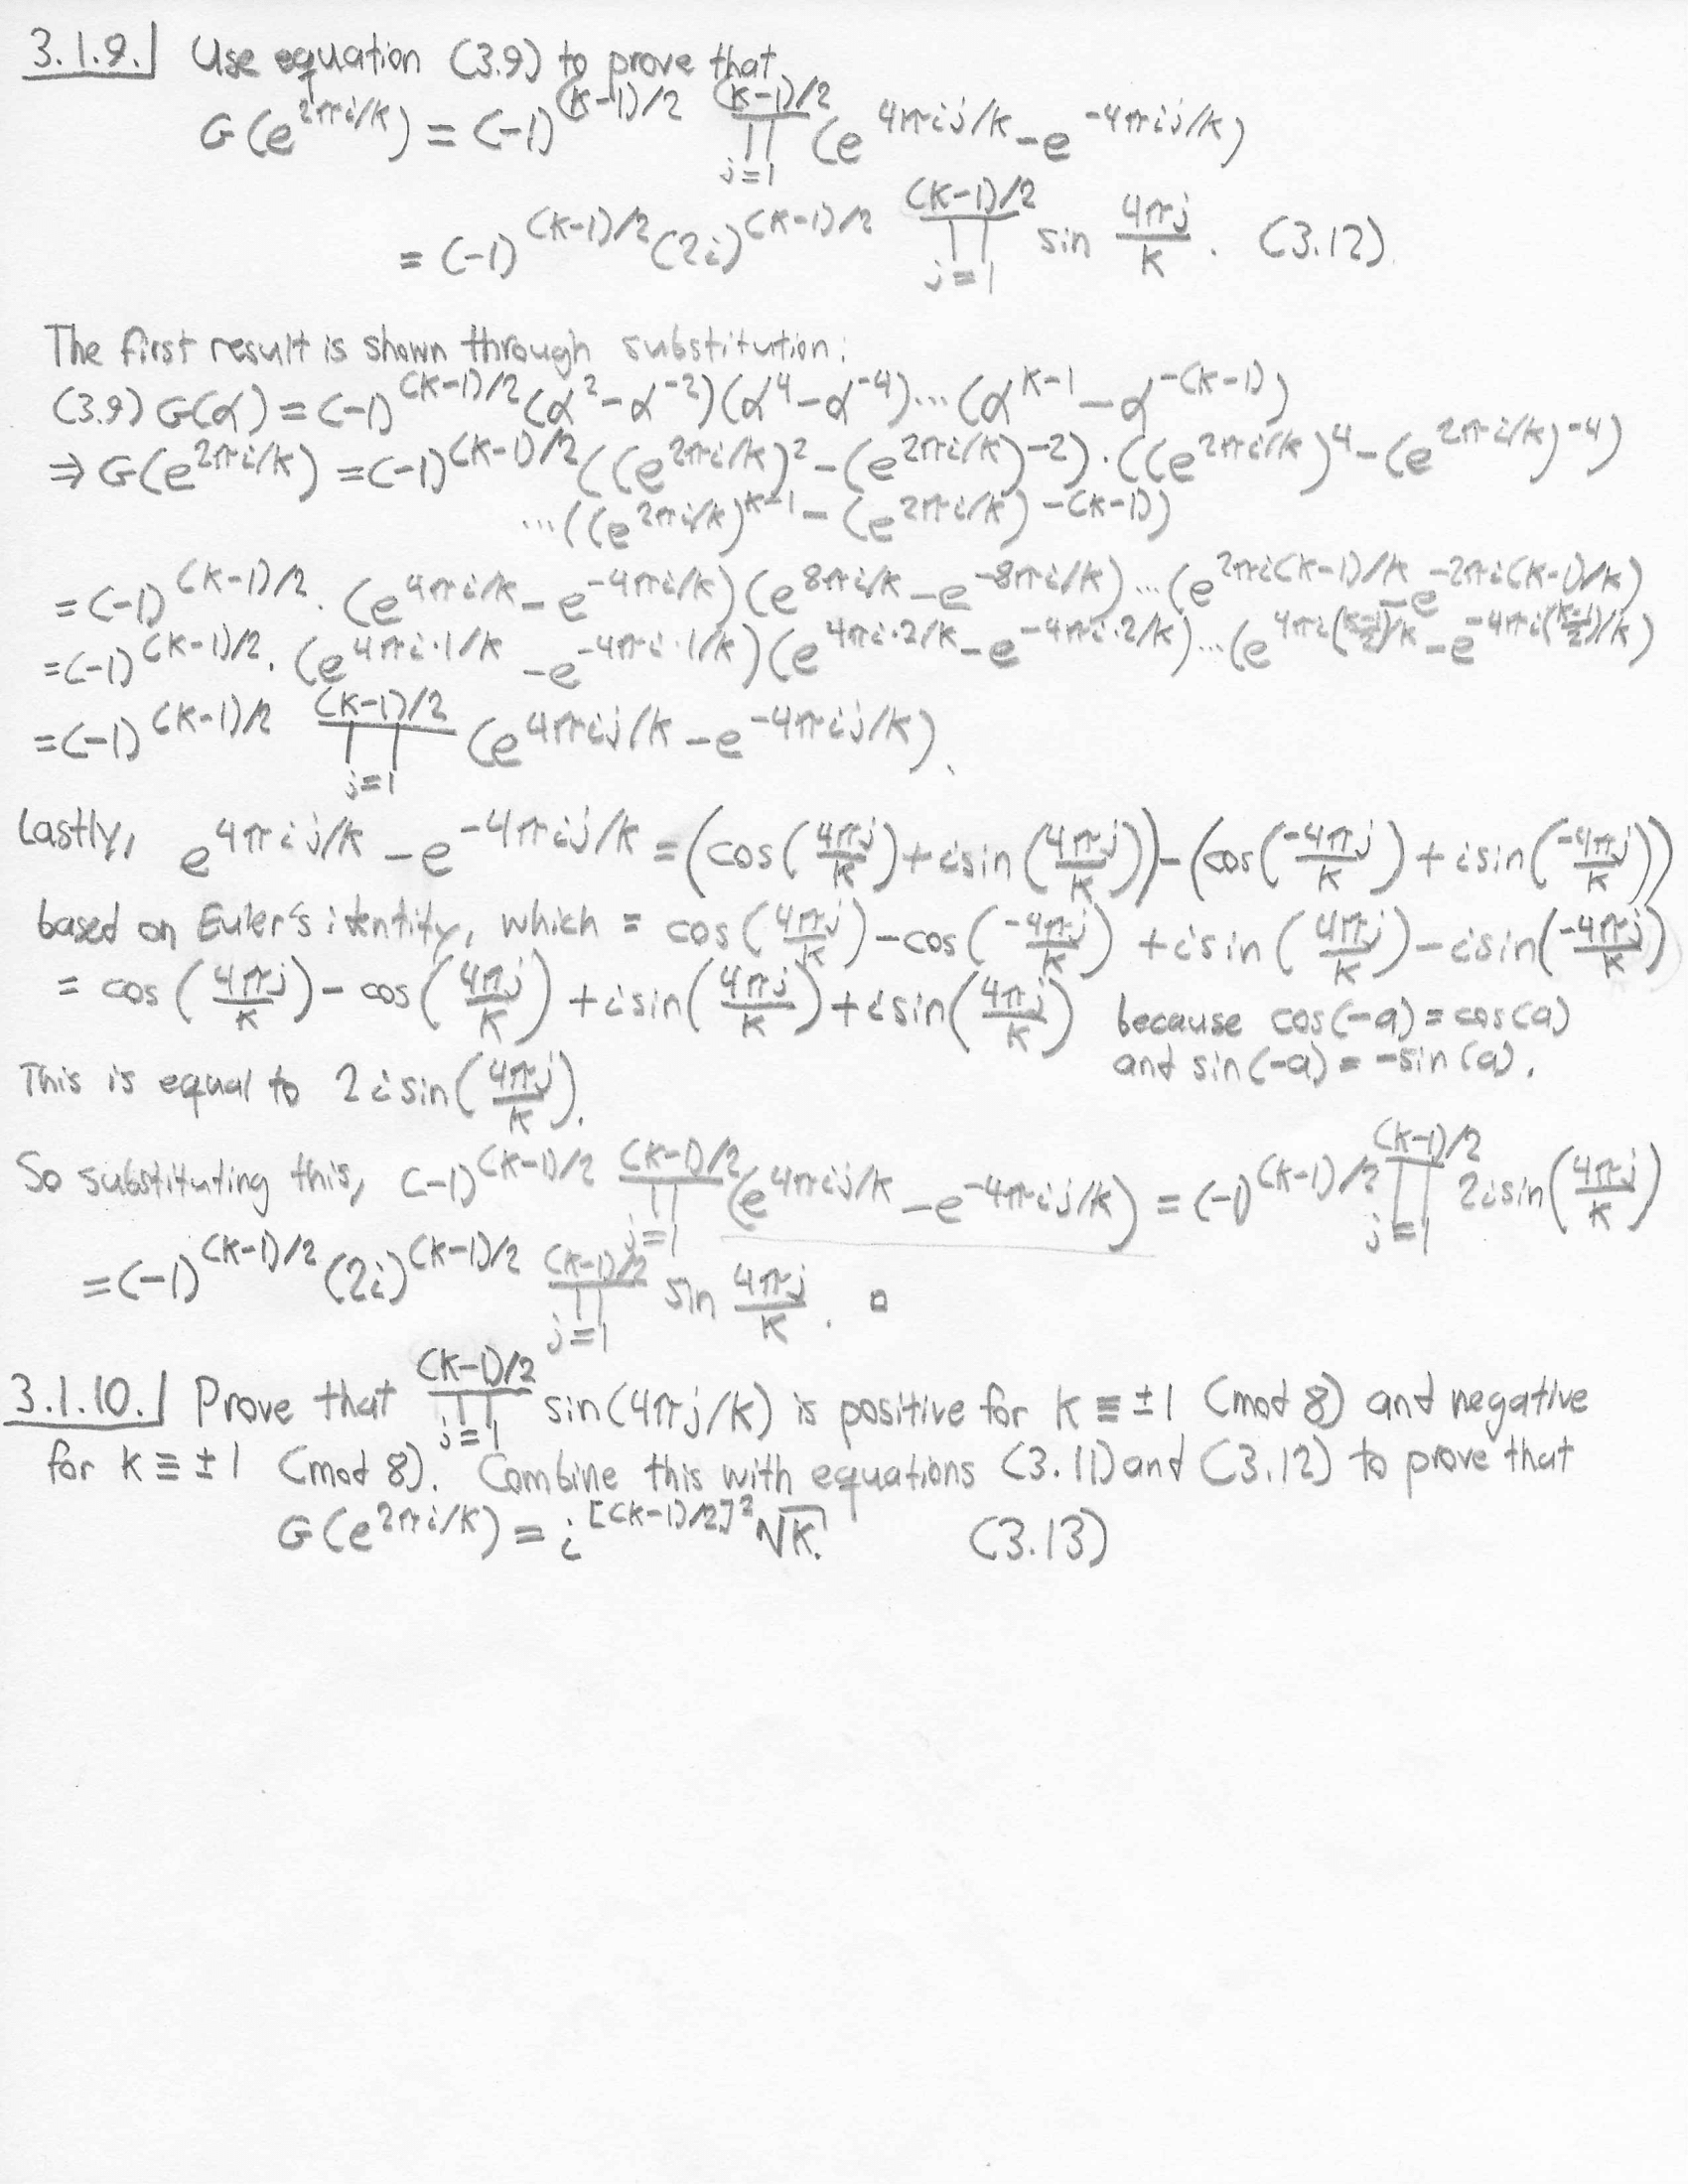 3.1.9. Use equation (3.9) to prove that
G(e^{2πi/k}) = (-1)^{(k-1)/2} ∏_{j=1}^{(k-1)/2} (e^{4πij/k} - e^{-4πij/k})
= (-1)^{(k-1)/2} (2i)^{(k-1)/2} ∏_{j=1}^{(k-1)/2} sin \frac{4πj}{k}. (3.12)
The first result is shown through substitution:
(3.9) G(α) = (-1)^{(k-1)/2} (α^2 - α^{-2})(α^4 - α^{-4})...(α^{k-1} - α^{-(k-1)})
⇒ G(e^{2πi/k}) = (-1)^{(k-1)/2} ((e^{2πi/k})^2 - (e^{2πi/k})^{-2}) · ((e^{2πi/k})^4 - (e^{2πi/k})^{-4})
...((e^{2πi/k})^{k-1} - (e^{2πi/k})^{-(k-1)})
= (-1)^{(k-1)/2} · (e^{4πi/k} - e^{-4πi/k})(e^{8πi/k} - e^{-8πi/k})...(e^{2πi(k-1)/k} - e^{-2πi(k-1)/k})
= (-1)^{(k-1)/2} · (e^{4πi·1/k} - e^{-4πi·1/k})(e^{4πi·2/k} - e^{-4πi·2/k})...(e^{4πi(\frac{k-1}{2})/k} - e^{-4πi(\frac{k-1}{2})/k})
= (-1)^{(k-1)/2} ∏_{j=1}^{(k-1)/2} (e^{4πij/k} - e^{-4πij/k}).
Lastly, e^{4πij/k} - e^{-4πij/k} = (cos(\frac{4πj}{k}) + isin(\frac{4πj}{k})) - (cos(\frac{-4πj}{k}) + isin(\frac{-4πj}{k}))
based on Euler's identity, which = cos(\frac{4πj}{k}) - cos(\frac{-4πj}{k}) + isin(\frac{4πj}{k}) - isin(\frac{-4πj}{k})
= cos(\frac{4πj}{k}) - cos(\frac{4πj}{k}) + isin(\frac{4πj}{k}) + isin(\frac{4πj}{k}) because cos(-a) = cos(a)
and sin(-a) = -sin(a).
This is equal to 2isin(\frac{4πj}{k}).
So substituting this, (-1)^{(k-1)/2} ∏_{j=1}^{(k-1)/2} (e^{4πij/k} - e^{-4πij/k}) = (-1)^{(k-1)/2} ∏_{j=1}^{(k-1)/2} 2isin(\frac{4πj}{k})
= (-1)^{(k-1)/2} (2i)^{(k-1)/2} ∏_{j=1}^{(k-1)/2} sin \frac{4πj}{k}. □
3.1.10. Prove that ∏_{j=1}^{(k-1)/2} sin(4πj/k) is positive for k ≡ ±1 (mod 8) and negative
for k ≡ ±1 (mod 8). Combine this with equations (3.11) and (3.12) to prove that
G(e^{2πi/k}) = i^{[(k-1)/2]^2} √k. (3.13)